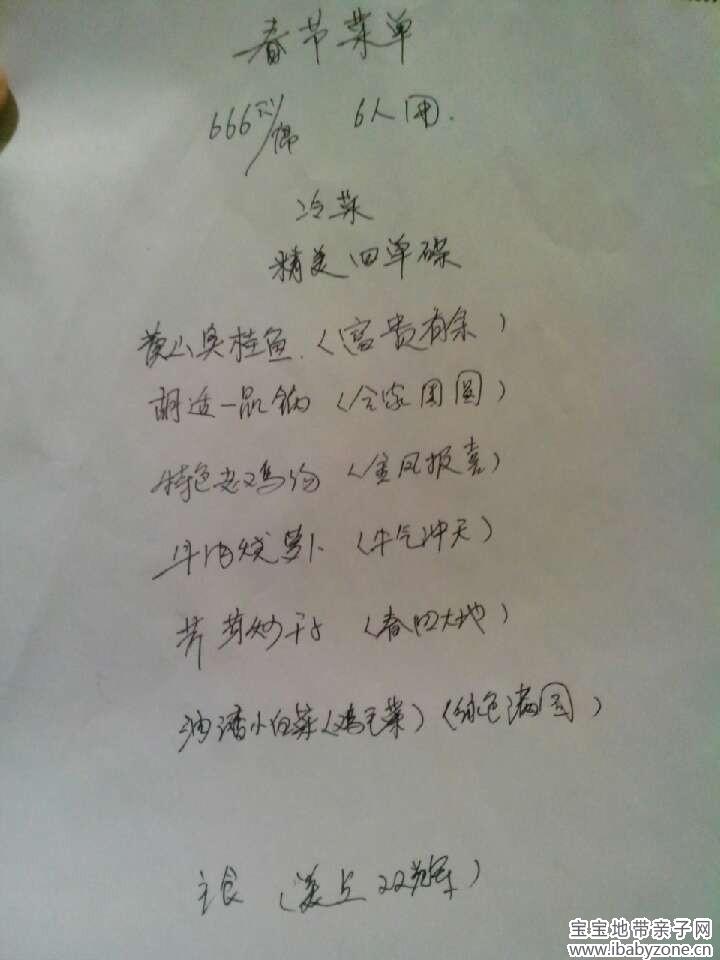 春节菜单
666元/席 6人用.
冷菜
精美四单碟
黄山臭桂鱼.(富贵有余)
胡适一品锅(合家团圆)
特色老鸡汤(金凤报喜)
牛肉烧萝卜(牛气冲天)
芹芽炒干子(春回大地)
油渍小白菜(鸡毛菜)(绿色满园)
主食(美点双辉)
宝宝地带亲子网
www.ibabyzone.cn